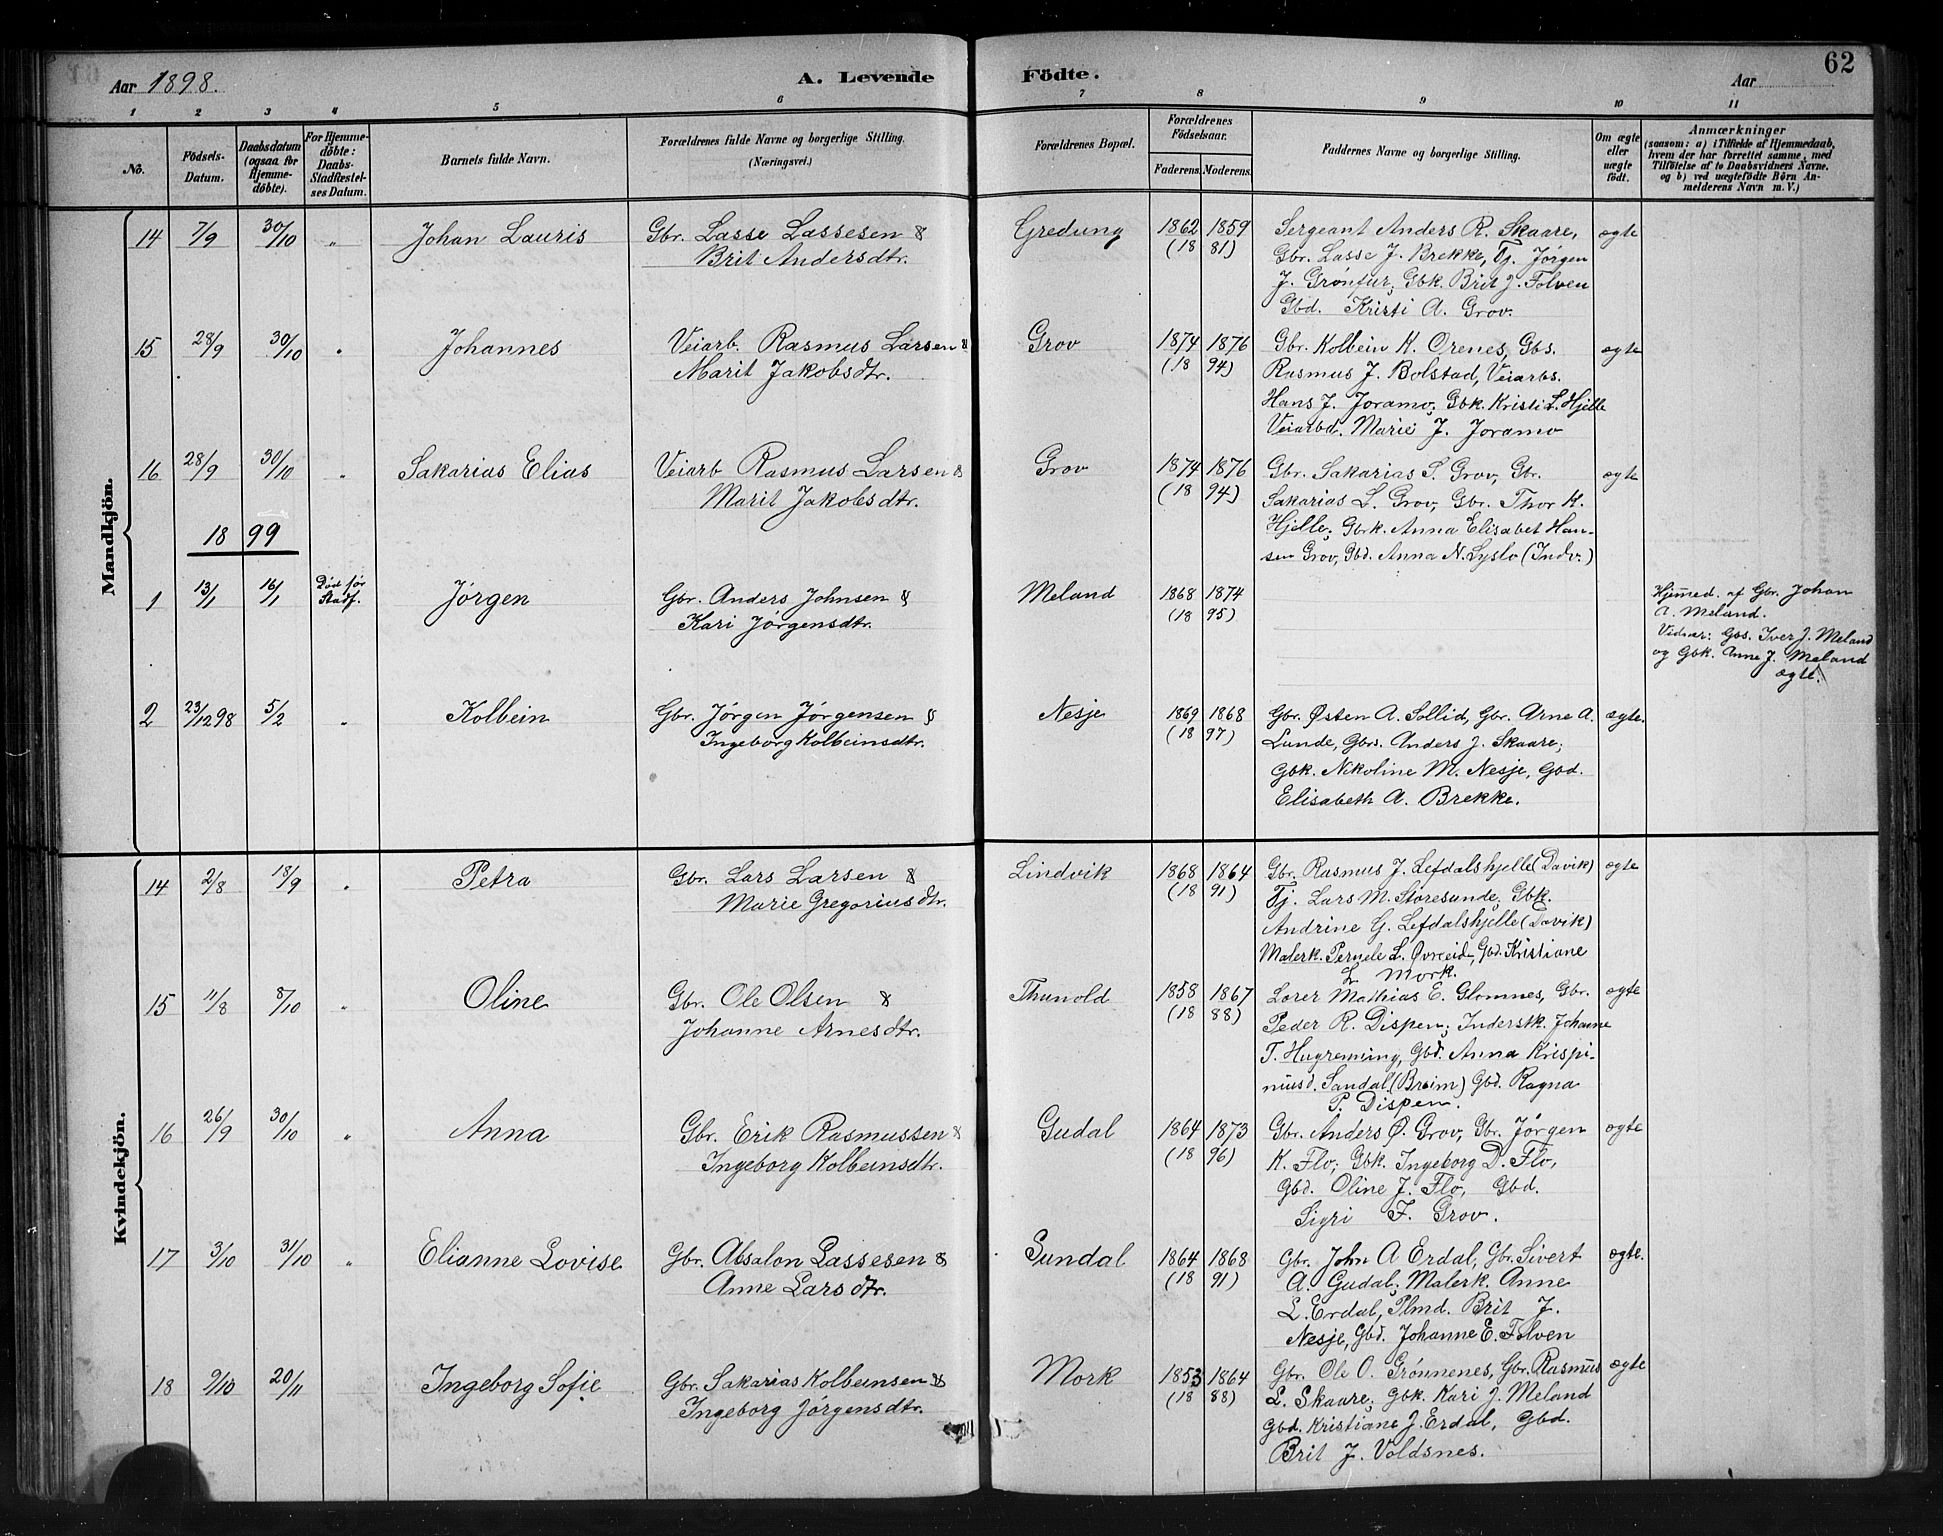 Aar 1898. A. Levende Födte. Aar 62
1 2 3 4 5 6 7 8 9 10 11
No.
Födsels-
Datum.
Daabsdatum
(ogsaa for
Hjemme-
döbte).
For Hjemme-
döbte:
Daabs-
Stadfæstel-
ses Datum.
Barnets fulde Navn.
Forældrenes fulde Navne og borgerlige Stilling.
(Næringsvei.)
Forældrenes Bopæl.
Forældrenes
Födselsaar.
Faderens. Moderens.
Faddernes Navne og borgerlige Stilling.
Om ægte
eller
uægte
födt.
Anmærkninger
(saasom: a) i Tilfælde af Hjemmedaab,
hvem der har forrettet samme, med
Tilföielse af to Daabsvidners Navne.
og b) ved uægtefödte Börn An-
melderens Navn m. V.)
Mandkjön.
14 7/9 30/10 " Johan Lauris Gbr. Lasse Lassesen & Gredung 1862 1859 Sergeant Anders R. Skaare, ægte
Brit Andersdtr. (18 81) Gbr. Lasse J. Brekke, Tj. Jørgen
J. Grønfur; Gbk. Brit J. Folven
Gbd. Kristi A. Grov.
15 28/9 30/10 " Johannes Veiarb. Rasmus Larsen & Grov 1874 1876 Gbr. Kolbein K. Orenes, Gbs. ægte
Marit Jakobsdtr. (18 94) Rasmus J. Bolstad, Veiarbs.
Hans J. Joramo; Gbk. Kristi L. Hjelle
Veiarbd. Marie J. Joramo
16 28/9 30/10 " Sakarias Elias Veiarb Rasmus Larsen & Grov 1874 1876 Gbr. Sakarias S. Grov, Gbr. ægte
Marit Jakobsdtr. (18 94) Sakarias L. Grov, Gbr. Thor K.
Hjelle; Gbrk. Anna Elisabet Han-
sen Grov, Gbd. Anna N. Lyslo (Indv.)
1899
1 13/1 16/1 Död før Stadf. Jørgen Gbr. Anders Johnsen & Meland 1868 1874 Hjemmed. af Gbr. Johan
Kari Jørgensdtr. (18 95) A. Meland.
Vidner: Gbs. Iver J. Meland
og Gbk. Anne J. Meland
ægte.
2 23/12 98 5/2 " Kolbein Gbr. Jørgen Jørgensen & Nesje 1869 1868 Gbr. Østen A. Sollid, Gbr. Arne A. ægte.
Ingeborg Kolbeinsdtr. (18 97) Lunde, Gbrs. Anders J. Skaare;
Gbk. Nikoline M. Nesje, Gbd.
Elisabeth A. Brekke.
Kvindekjön.
14 2/8 18/9 " Petra Gbr. Lars Larsen & Lindvik 1868 1864 Gbr. Rasmus J. Lefdalshjelle (Davik) ægte
Marie Gregoriusdtr. (18 91) Tj. Lars M. Storesunde; Gbk.
Andrine G. Lefdalshjelle (Davik)
Malerk. Pernele L. Øvreeide, Gbd. Kristiane
L. Mork.
15 11/8 8/10 " Oline Gbr. Ole Olsen & Thunold 1858 1867 Lærer Mathias E. Glomnes, Gbr. ægte
Johanne Arnesdtr. (18 88) Peder R. Dispen; Inderstk. Johanne
T. Hugremning, Gbd. Anna Krispi-
niusd. Sandal (Breim) Gbd. Ragna
P. Dispen.
16 26/9 30/10 " Anna Gbr. Erik Rasmussen & Gudal 1864 1873 Gbr. Anders Ø. Grov, Gbr. Jørgen ægte
Ingeborg Kolbeinsdtr. (18 96) K. Flo; Gbk. Ingeborg D. Flo,
Gbd. Oline J. Flo, Gbd.
Sigri F. Grov.
17 3/10 31/10 " Elianne Lovise Gbr. Absalon Lassesen & Sundal 1864 1868 Gbr. John A Erdal, Gbr. Sivert ægte.
Anne Larsdtr. (18 91) A. Gudal; Malerk. Anne
L. Erdal, Plmd. Brit J.
Nesje, Gbd. Johanne E. Folven
18 9/10 20/11 Ingeborg Sofie Gbr. Sakarias Kolbeinsen & Mork 1853 1864 Gbr. Ole O. Grønnenes, Gbr. Rasmus ægte
Ingeborg Jørgensdtr. (18 88) L. Skaare; Gbk. Kari J. Meland
Gbd. Kristiane J. Erdal, Gbd.
Brit J. Voldsnes.